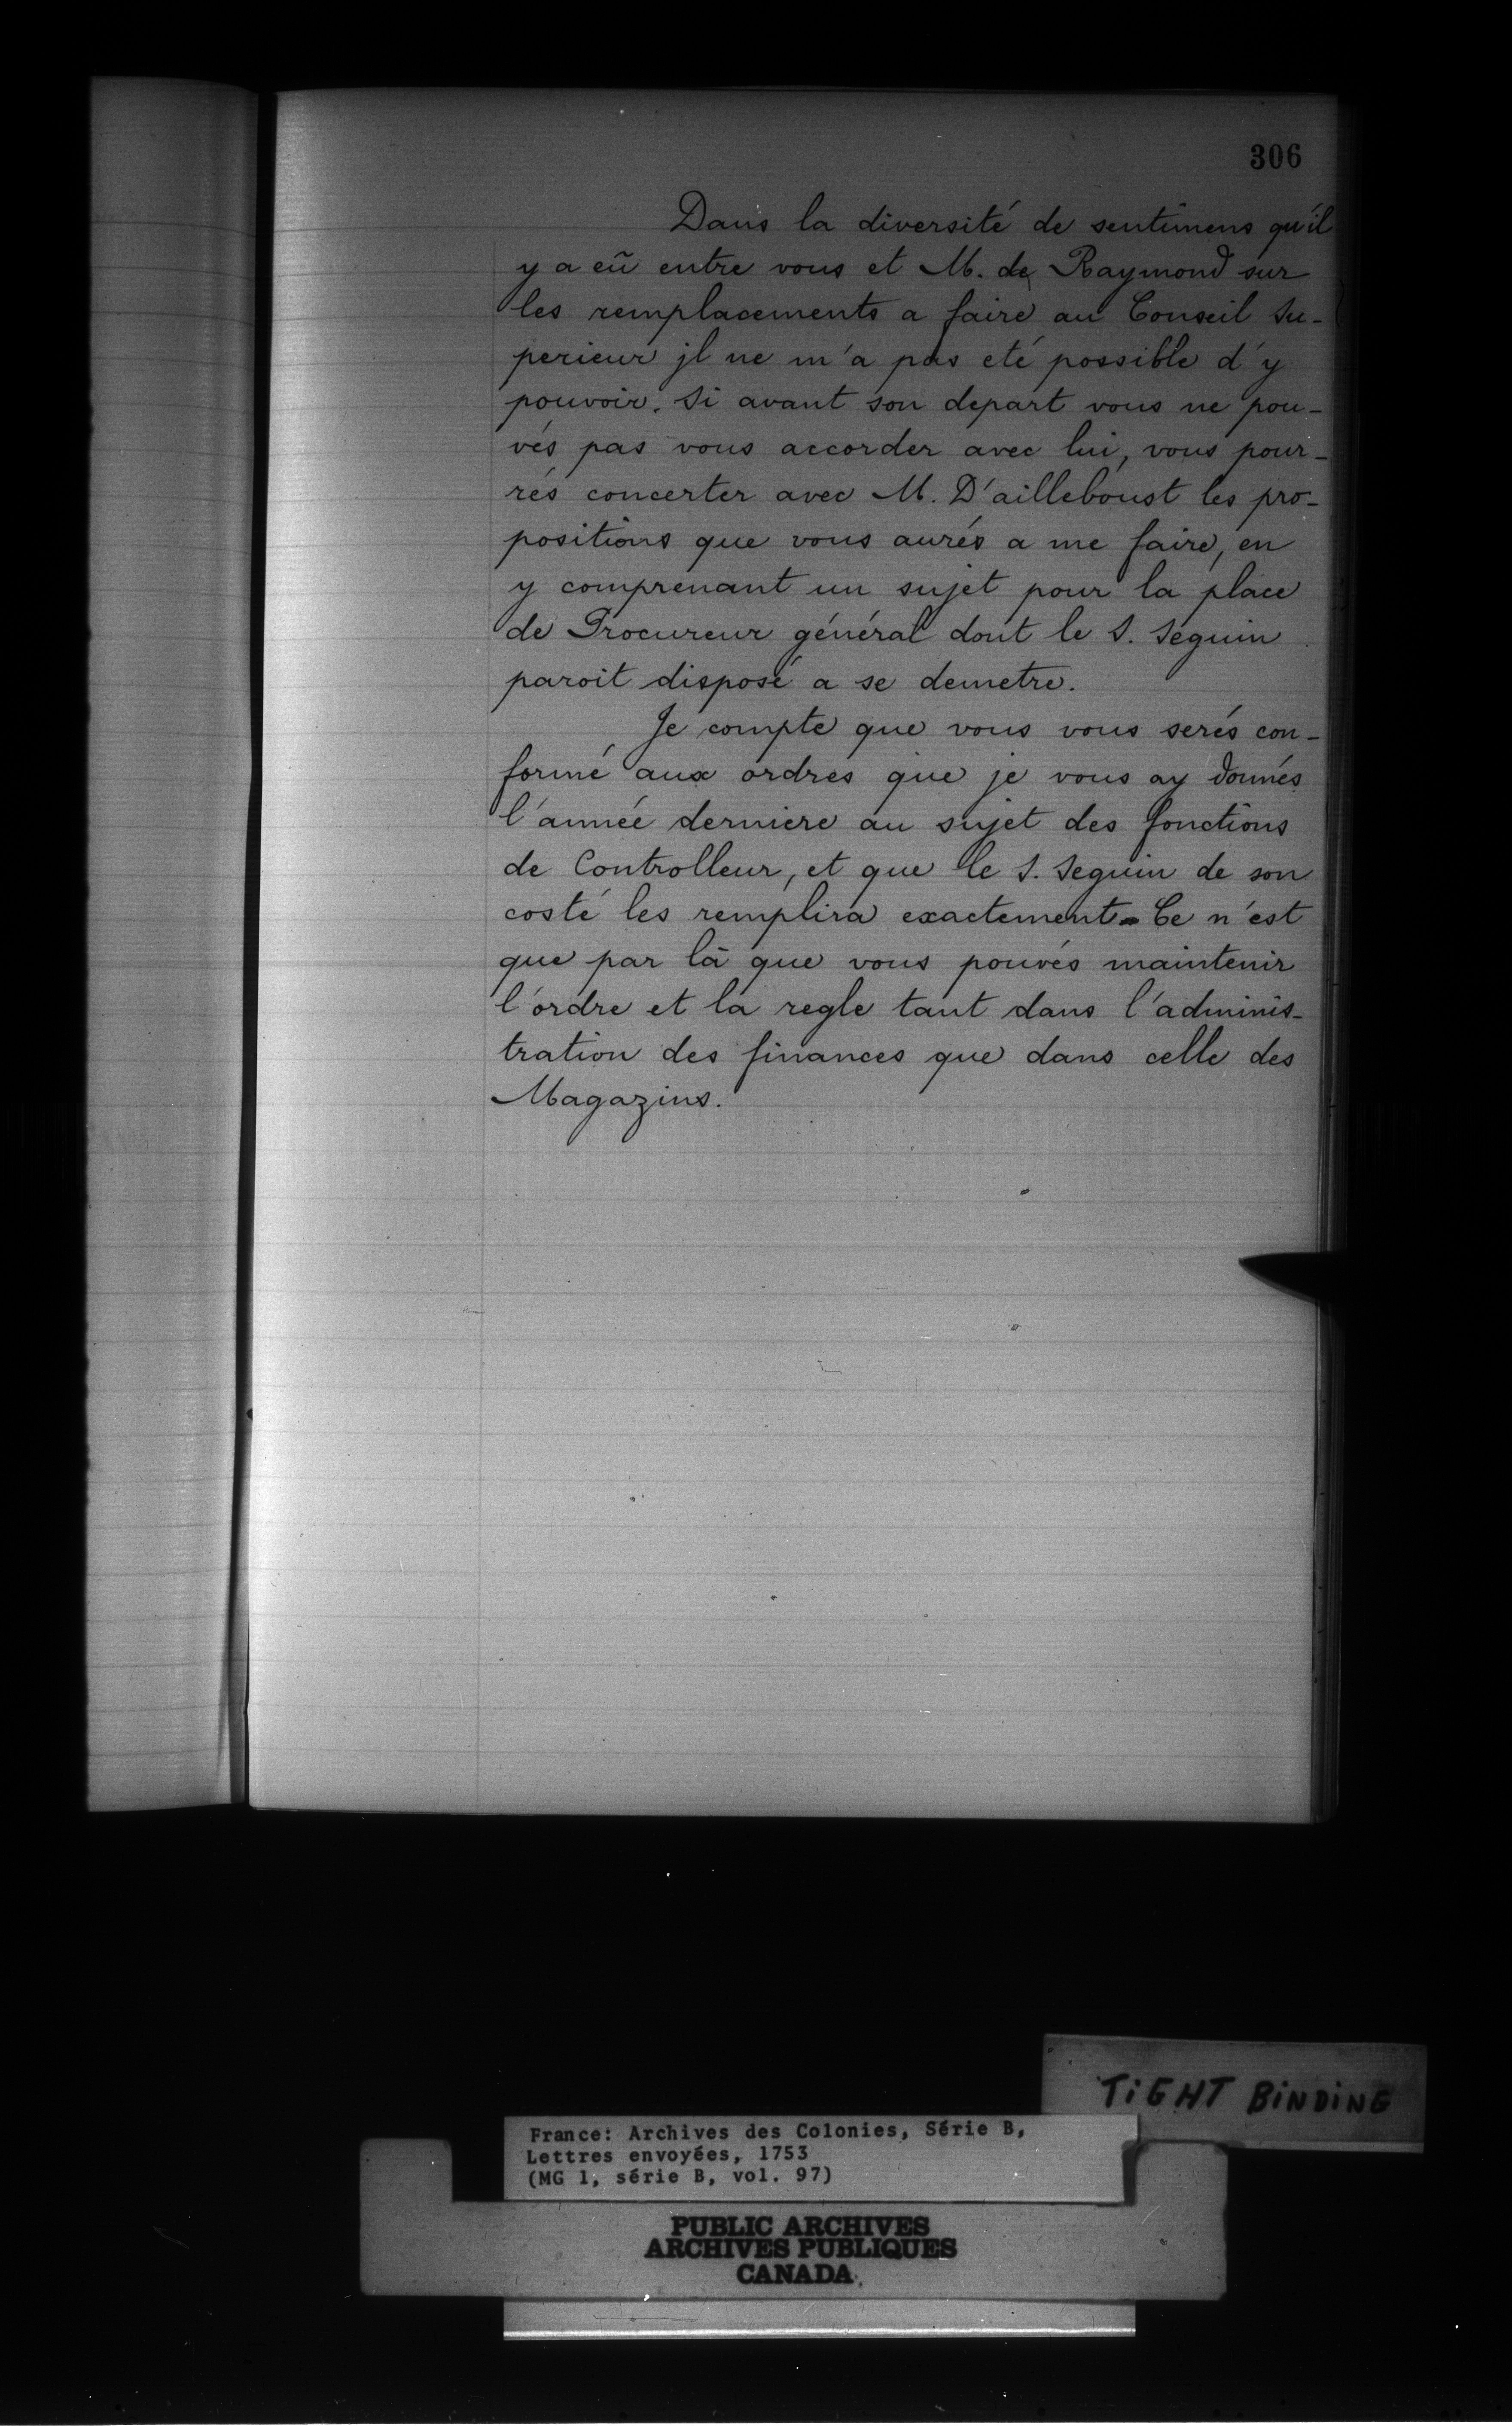 306
Dans la diversité de sentimens qu'il
y a eû entre vous et M. de Raymond sur
les remplacements a faire au Conseil Su-
perieur jl ne m'a pas eté possible d'y
pouvoir. Si avant son depart vous ne pou-
vés pas vous accorder avec lui, vous pour-
rés concerter avec M. D'ailleboust les pro-
positions que vous aurés a me faire, en
y comprenant un sujet pour la place
de Procureur général dont le S. Séguin
paroit disposé a se demetre.
Je compte que vous vous serés con-
formé aux ordres que je vous ay donnés
l'année derniere au sujet des fonctions
de Controlleur, et que le S. Seguin de son
costé les remplira exactement. Ce n'est
que par là que vous pouvés maintenir
l'ordre et la regle tant dans l'adminis-
tration des finances que dans celle des
Magazins.
TIGHT BINDING
France: Archives des Colonies, Série B,
Lettres envoyées, 1753
(MG 1, série B, vol. 97)
PUBLIC ARCHIVES
ARCHIVES PUBLIQUES
CANADA